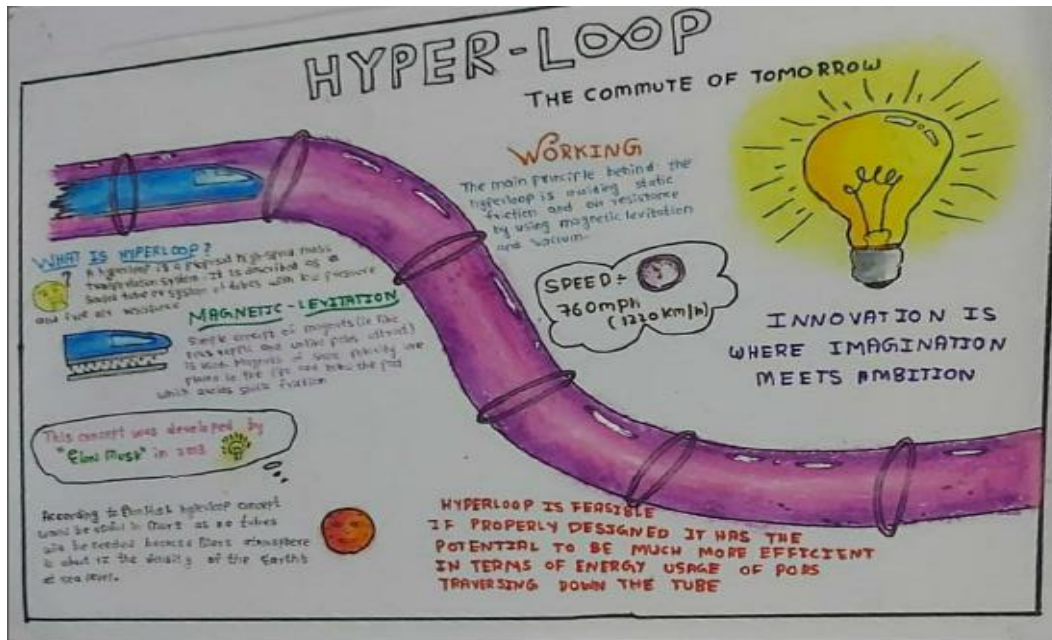 HYPER-LOOP
THE COMMUTE OF TOMORROW
WORKING
The main principle behind the
hyperloop is avoiding static
friction and air resistance
by using magnetic levitation
and vacuum.
SPEED:-
760mph
(1220 Km/h)
INNOVATION IS
WHERE IMAGINATION
MEETS AMBITION
WHAT IS HYPERLOOP?
?
A hyperloop is a proposed high-speed mass
transportation system. It is described as a
sealed tube or system of tubes with low pressure
and air resistance
MAGNETIC-LEVITATION
Simple concept of magnets (ie like
poles repel and unlike poles attract)
is used. Magnets of same polarity are
placed in the and the pod
which avoids static friction
This concept was developed by
"Elon Musk" in 2013
According to Elon Musk hyperloop concept
would be useful in Mars as no tubes
will be needed because Mars atmosphere
is about 1% the density of the Earth's
at sea level.
HYPERLOOP IS FEASIBLE
IF PROPERLY DESIGNED IT HAS THE
POTENTIAL TO BE MUCH MORE EFFICIENT
IN TERMS OF ENERGY USAGE OF PODS
TRAVERSING DOWN THE TUBE